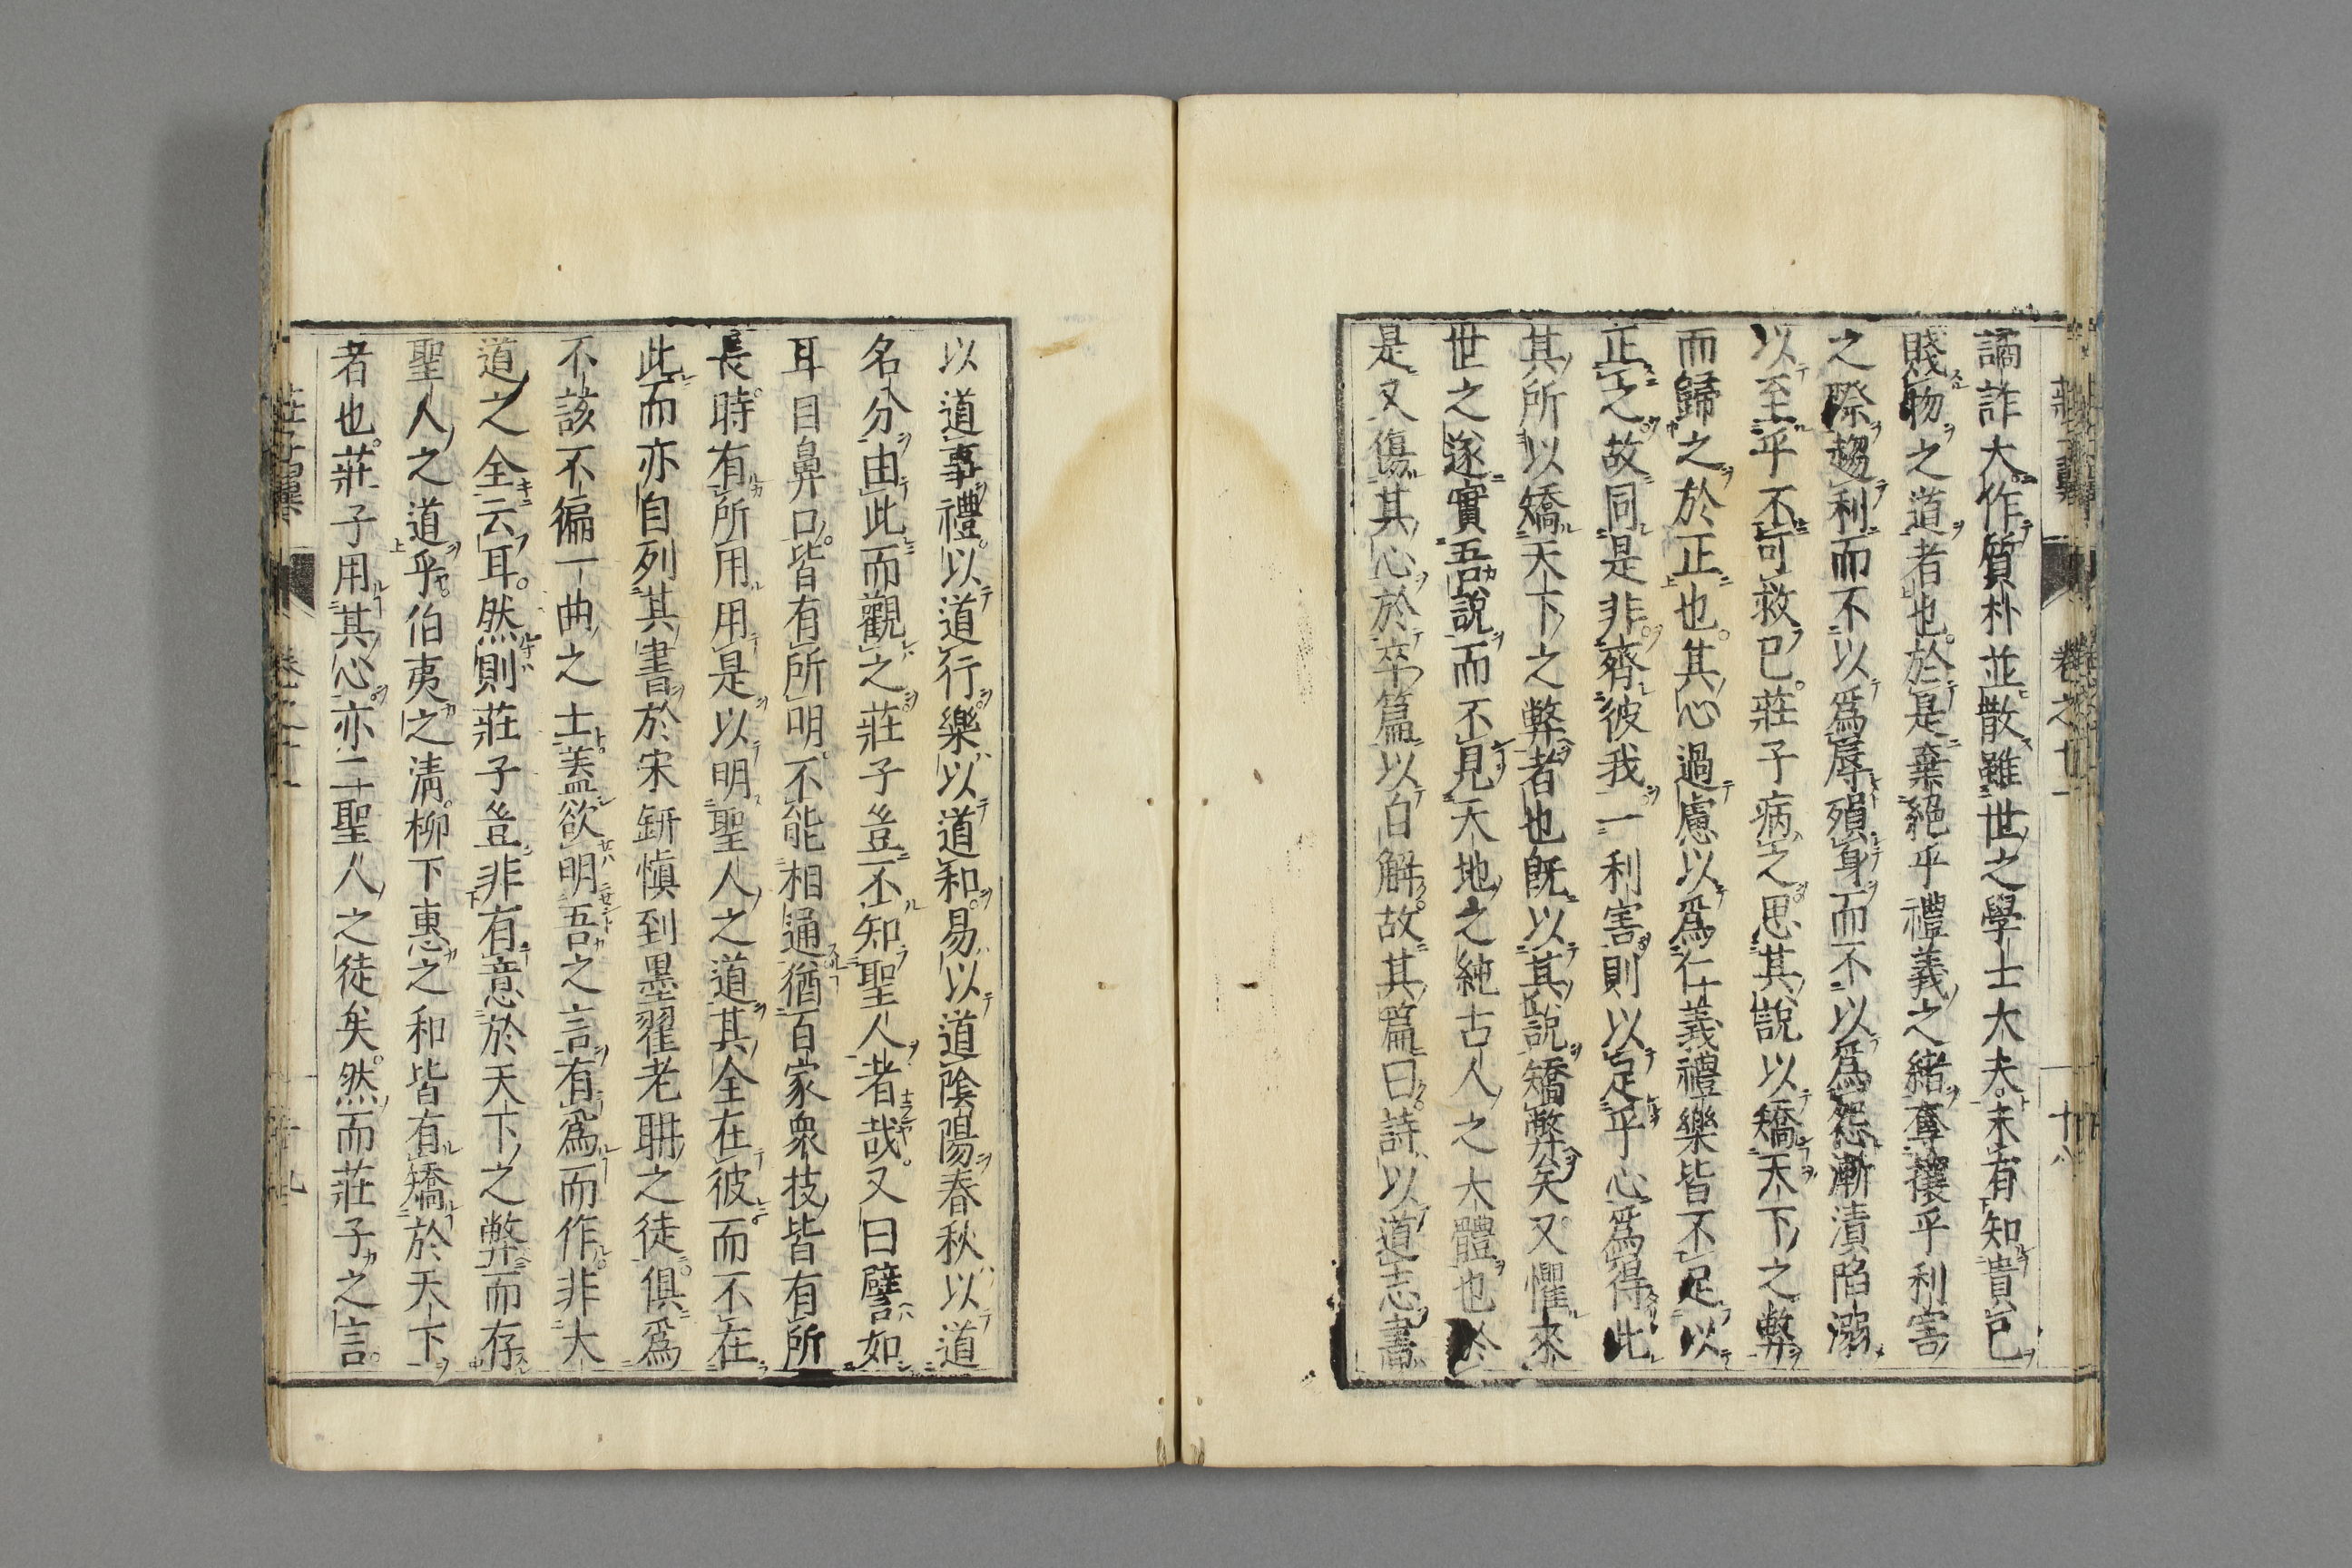 譎詐大作質朴並散雖世之學士大夫未有知貴己
賤物之道者也於是棄絕乎禮義之緒奪攘乎利害
之際趨利而不以爲辱殞身而不以爲怨漸漬陷溺
以至乎不可救已莊子病之思其說以矯天下之弊
而歸之於正也其心過慮以爲仁義禮樂皆不足以
正之故同是非齊彼我一利害則以足乎心爲得此
其所以矯天下之弊者也既以其說矯弊矣又懼來
世之遂實吾說而不見天地之純古人之大體也於
是又傷其心於卒篇以自解故其篇曰詩以道志書
以道事禮以道行樂以道和易以道陰陽春秋以道
名分由此而觀之莊子豈不知聖人者哉又曰譬如
耳目鼻口皆有所明不能相通猶百家衆技皆有所
長時有所用用是以明聖人之道其全在彼而不在
此而亦自列其書於宋鈃愼到墨翟老聃之徒俱爲
不該不徧一曲之士蓋欲明吾之言有爲而作非大
道之全云耳然則莊子豈非有意於天下之弊而存
聖人之道乎伯夷之淸柳下惠之和皆有矯於天下
者也莊子用其心亦二聖人之徒矣然而莊子之言